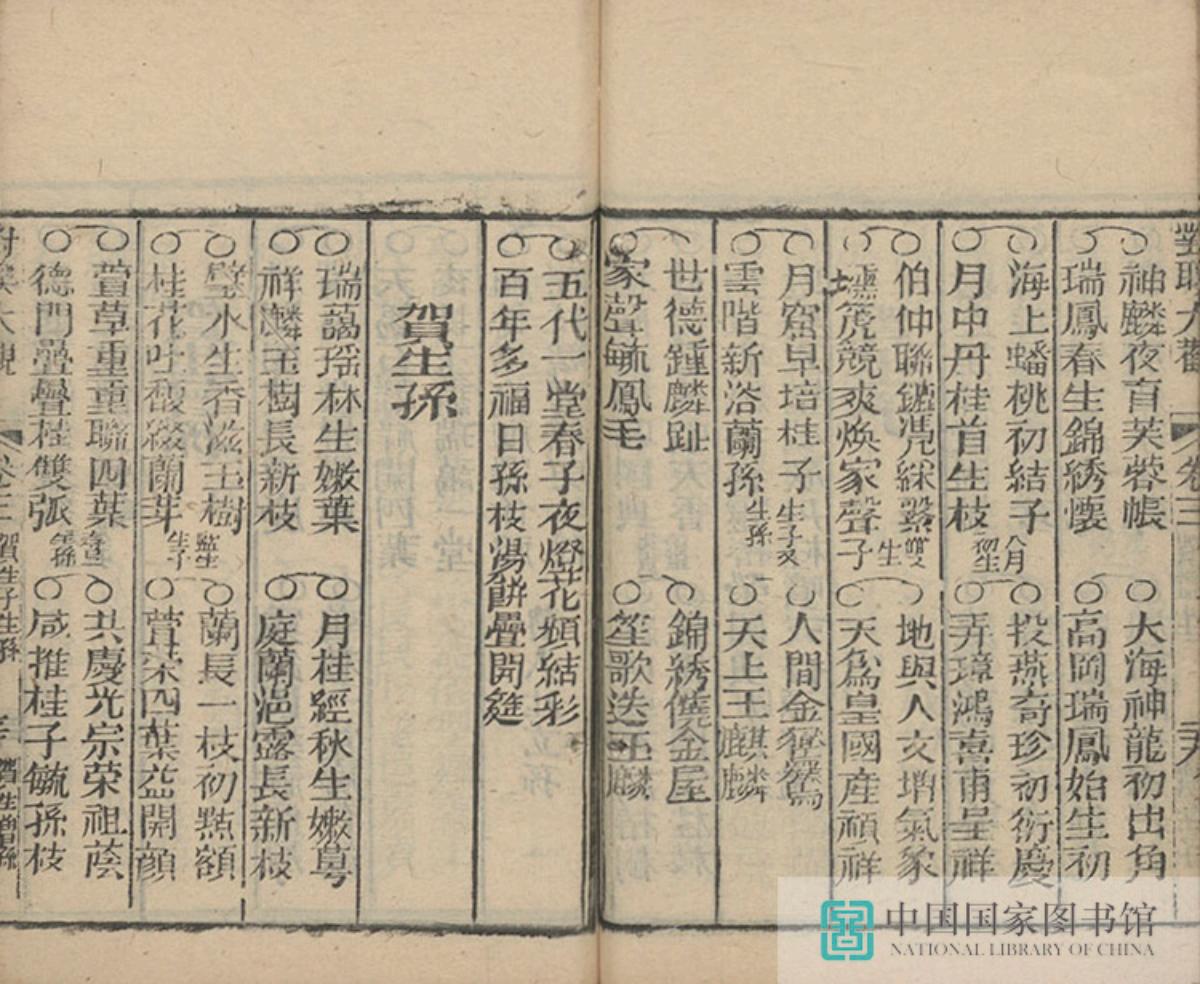 對聯大觀 卷三
神麟夜育芙蓉帳
瑞鳳春生錦綉懷
大海神龍初出角
高岡瑞鳳始生初
海上蟠桃初結子
月中丹桂首生枝
八月初生
投燕奇珍初衍慶
弄璋鴻喜甫呈祥
伯仲聯鑣凴綵
塤箎競爽煥家聲
雙生子
地與人文增氣象
天爲皇國產禎祥
月窟早培桂子
雲階新浴蘭孫
生子又生孫
人間金
天上玉麒麟
世德鍾麟趾
家聲毓鳳毛
錦綉僥金屋
笙歌迭玉麟
五代一堂春子夜燈花頻結彩
百年多福日孫枝湯餅疊開筵
賀生孫
瑞藹瑶林生嫩葉
祥麟玉樹長新枝
月桂經秋生嫩萼
庭蘭浥露長新枝
璧水生香滋玉樹
桂花吐馥綴蘭芽
監生生子
蘭長一枝初㸃額
蓂葉四葉益開顔
萱草重重聯四葉
德門疊疊桂雙弧
共慶光宗荣祖蔭
咸推桂子毓孫枝
卷三 賀生子生孫
賀生曾孫
中国国家图书馆
NATIONAL LIBRARY OF CHINA